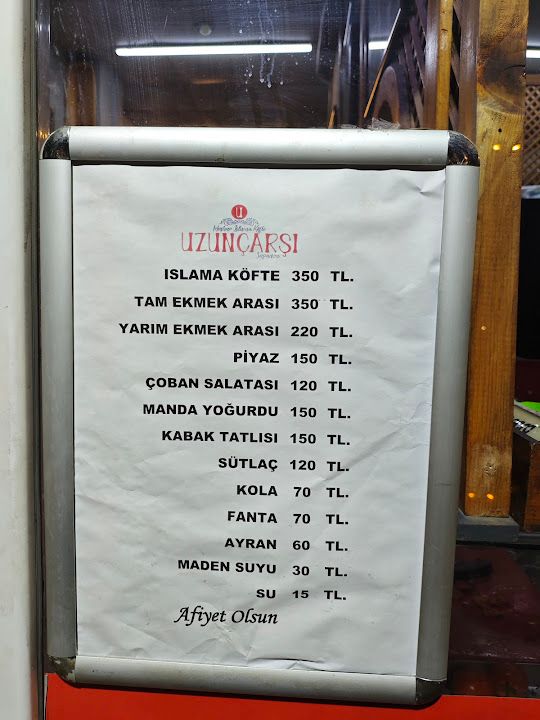 U
UZUNÇARŞI
ISLAMA KÖFTE 350 TL.
TAM EKMEK ARASI 350 TL.
YARIM EKMEK ARASI 220 TL.
PİYAZ 150 TL.
ÇOBAN SALATASI 120 TL.
MANDA YOĞURDU 150 TL.
KABAK TATLISI 150 TL.
SÜTLAÇ 120 TL.
KOLA 70 TL.
FANTA 70 TL.
AYRAN 60 TL.
MADEN SUYU 30 TL.
SU 15 TL.
Afiyet Olsun